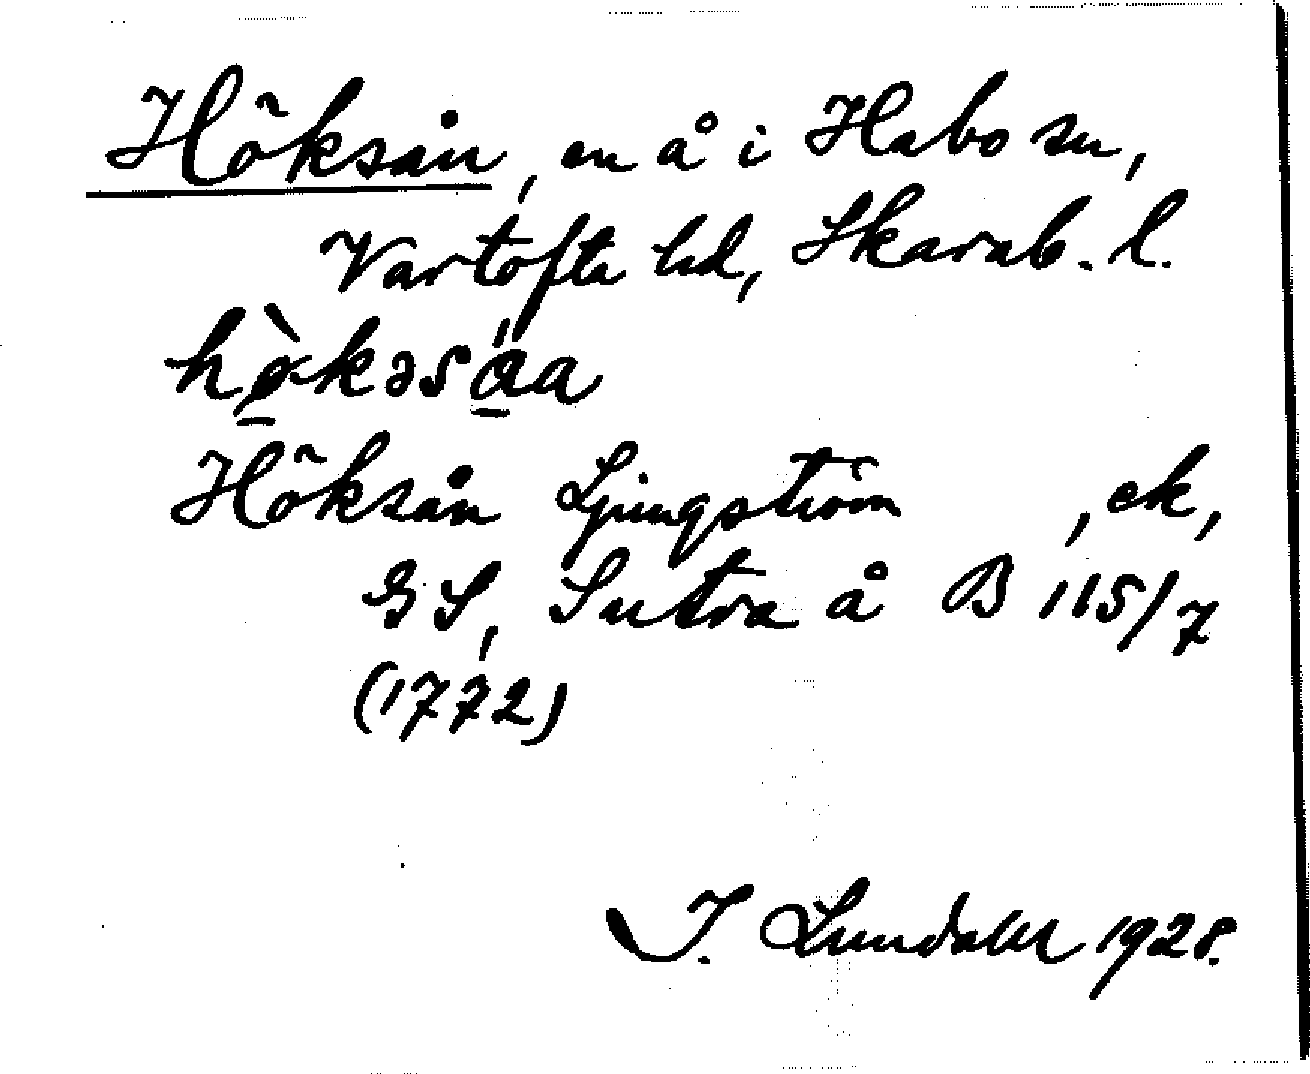 Höksån, en å i Habo sn,
Vartofta hd, Skarab. l.
hø̀kəsa̋a
Höksån Ljungström , ek,
GS, Sutra å B 115/7
(1772)
I. Lundahl 1928.